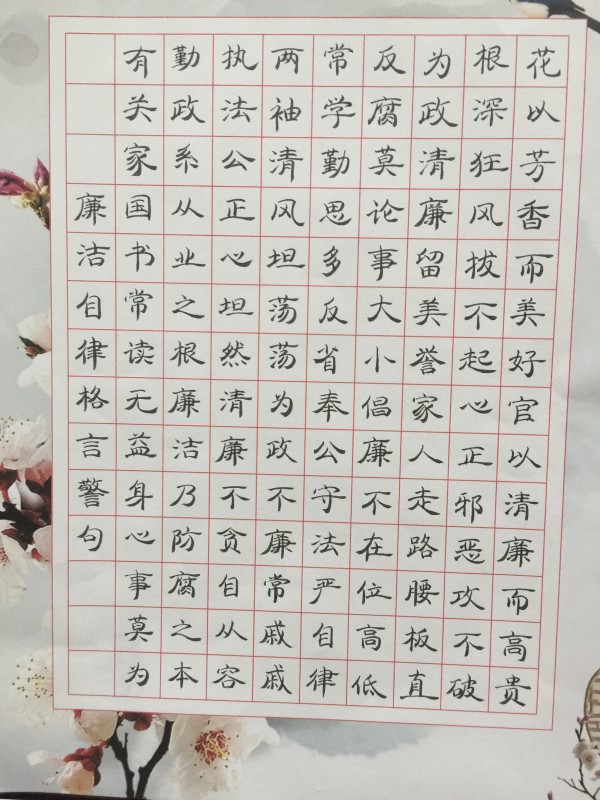 花以芳香而美好官以清廉而高贵
根深狂风拔不起心正邪恶攻不破
为政清廉留美誉家人走路腰板直
反腐莫论事大小倡廉不在位高低
常学勤思多反省奉公守法严自律
两袖清风坦荡荡为政不廉常戚戚
执法公正心坦然清廉不贪自从容
勤政系从业之根廉洁乃防腐之本
有关家国书常读无益身心事莫为
廉洁自律格言警句